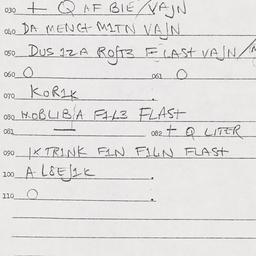 030 + Q AF BIE/VAJN
040 DA MENGt M1TN VAJN
050 DUS 1Z A ROFT3 F LAST VAJN/
060 O 061 O
070 KOR1K
080 NOBLIB/A F1L3 FLAST
081 — 082 + Q LITER
090 IX TR1NK F1N F1LN FLAST
100 A LSEJ1K
110 O